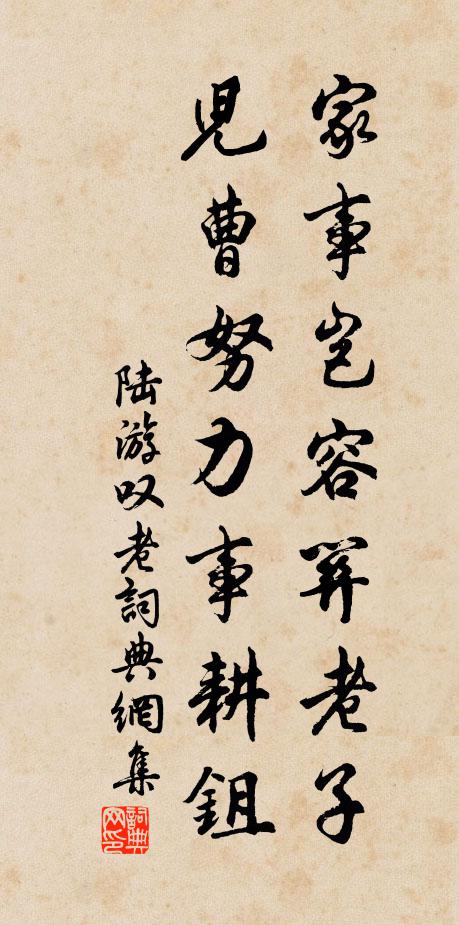 家事岂容關老子
兒曹努力事耕鉏
陆游叹老詞典網集
詞典
网印